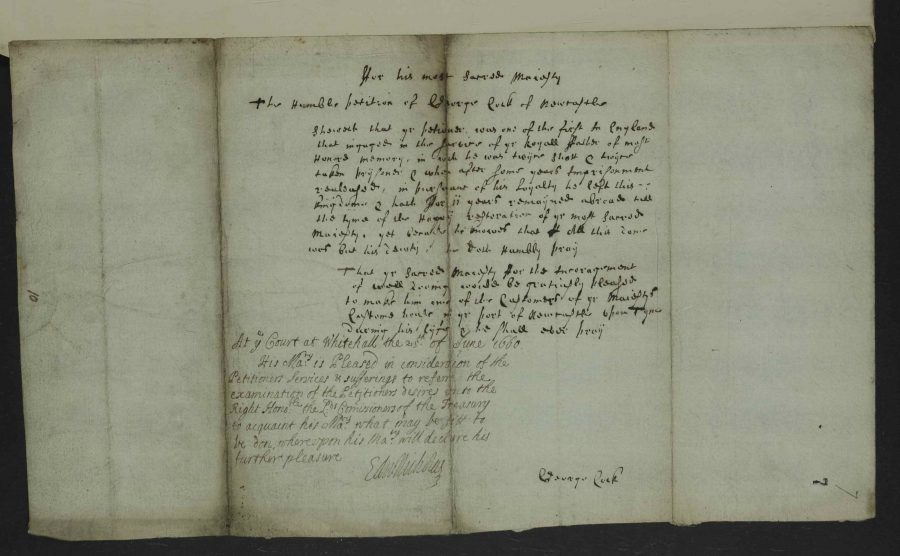 ffor his most Sacred Maiesty
The Humble petition of George Cock of Newcastle
Sheweth that yr petioner was one of the first In England
that ingaged in the Service of yr Royall ffather of most
Honred memory, in wch he was twyce Shott & twyce
taken prysoner & when after some years Imprisonment
realeased, in pursuance of his Loyalty he left this --
Kingdome & hath ffor 11 years remayned abroad till
the tyme of the Happy restoration of yr most Sacred
Maiesty, yet because he knowes that all this done
was but his Dewty, he doth Humbly pray
That yr Sacred Maiesty ffor the Incoragement
of well doeing would be gratiously pleased
to make him one of the Customers of yr Maiestys
Custome house in yr port of Newcastle upon Tyne
during his lyfe & he shall ever pray
At ye Court at Whitehall the 25th of June 1660
His Maty is Pleased in consideracion of the
Petitioners Services & sufferings to referr the
examination of the Petitioners desires unto the
Right Honoble the Lds Comissioners of the Treasury
to acquaint his Maty what may be fitt to
be don, whereupon his Maty will declare his
further pleasure
Edw Nicholas
George Cock
10
7